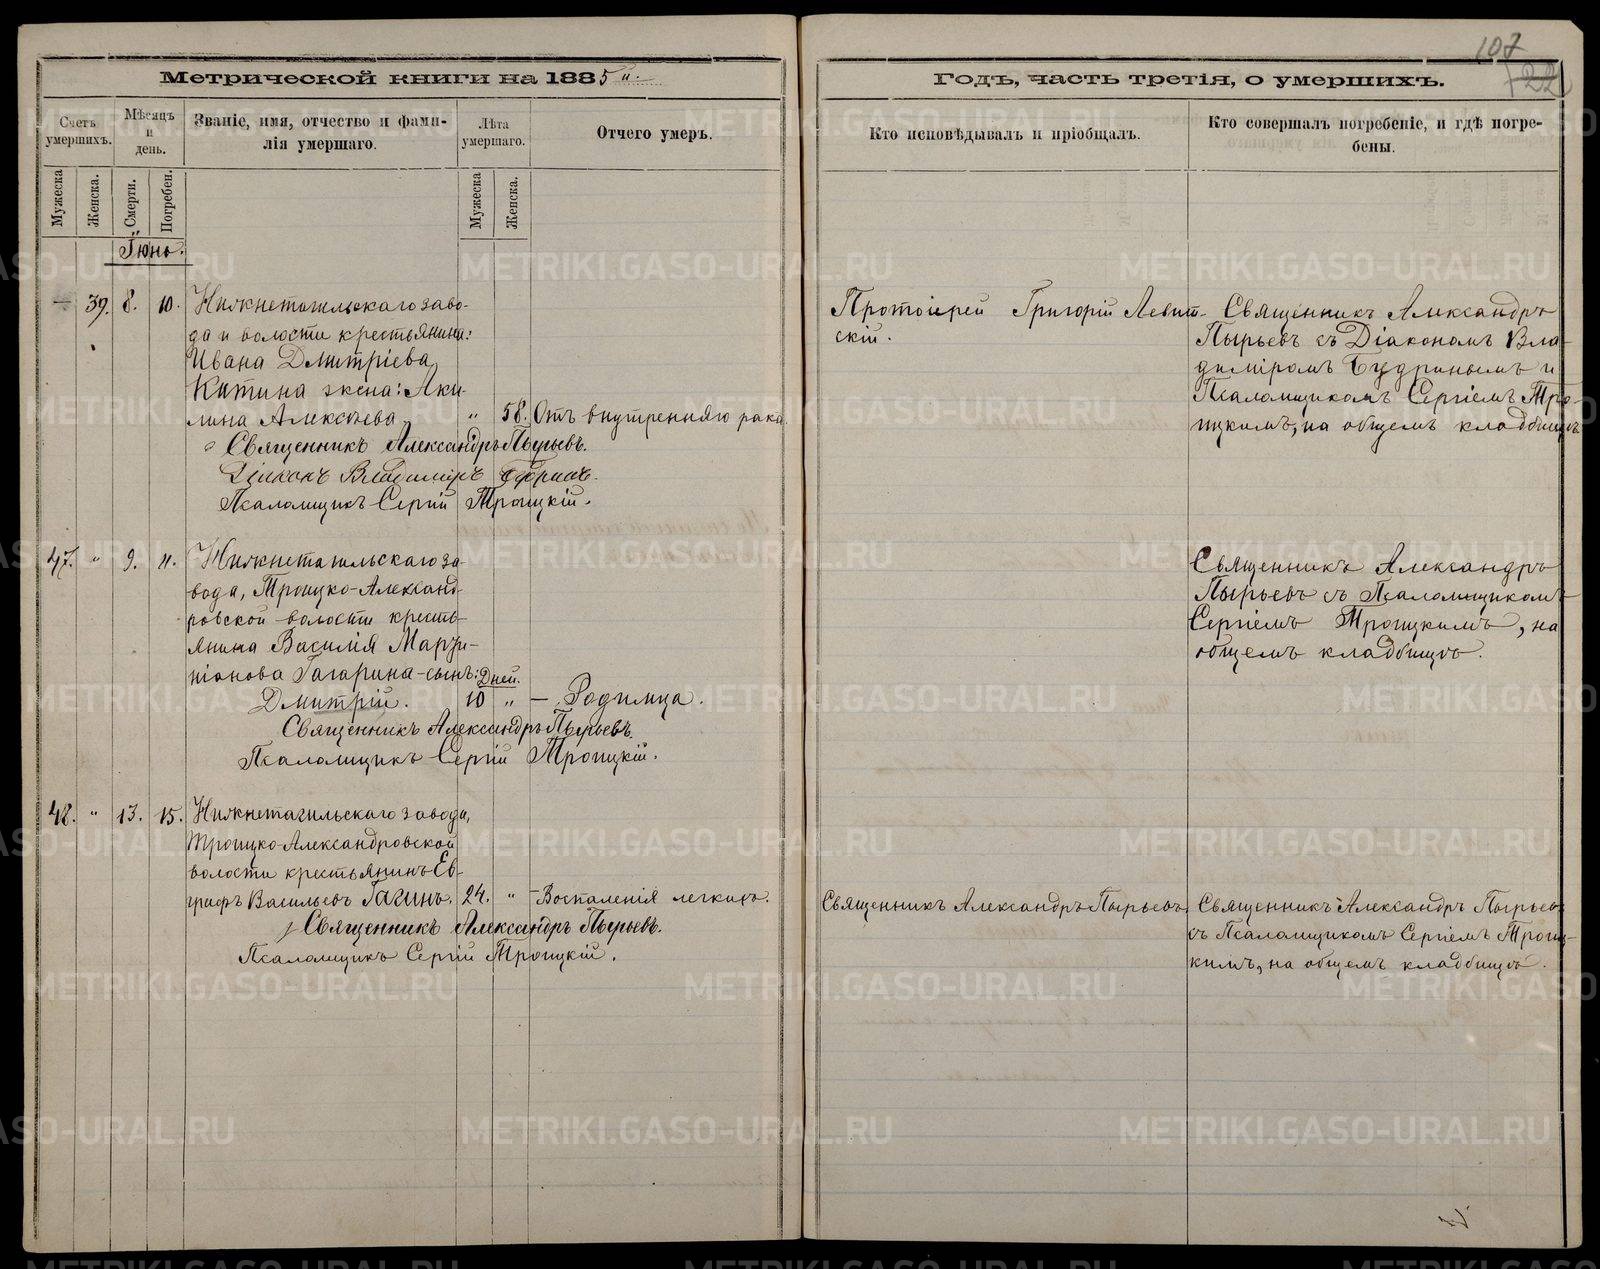 107
22
Метрической книги на 1885 й.
Годъ, часть третія, о умершихъ.
Счетъ умершихъ.
Мѣсяцъ и день.
Званіе, имя, отчество и фами-
лія умершаго.
Лѣта умершаго.
Отчего умеръ.
Кто исповѣдывалъ и пріобщалъ.
Кто совершалъ погребеніе, и гдѣ погре-
бены.
Мужеска
Женска.
Смерти.
Погребен.
Мужеска
Женска.
Іюнь.
— 39. 8. 10. Нижнетагильскаго заво-
да и волости крестьянина:
Ивана Дмитріева
Катина жена: Аки-
лина Алексѣева „ 58. Отъ внутренняго рака
Священникъ Александръ Пырьевъ.
Діаконъ Владиміръ
Псаломщикъ Сергій Троицкій.
Протоіерей Григорій Левит-
скій.
Священникъ Александръ
Пырьевъ съ Діакономъ Вла-
диміромъ Будринымъ и
Псаломщикомъ Сергіемъ Тро-
ицкимъ, на общемъ кладбищѣ
47. „ 9. 11. Нижнетагильскаго за-
вода, Троицко-Александ-
ровской волости кресть-
янина Василія
Гагарина-сынъ: Дней.
Дмитрій. 10 „ — Родимца.
Священникъ Александръ Пырьевъ.
Псаломщикъ Сергій Троицкій.
Священникъ Александръ
Пырьевъ съ Псаломщикомъ
Сергіемъ Троицкимъ, на
общемъ кладбищѣ.
48. „ 13. 15. Нижнетагильскаго завода,
Троицко-Александровской
волости крестьянинъ Ев-
графъ Васильевъ Гагинъ. 24. „ — Воспаленія легкихъ.
Священникъ Александръ Пырьевъ.
Псаломщикъ Сергій Троицкій.
Священникъ Александръ Пырьевъ
Священникъ Александръ Пырьевъ
съ Псаломщикомъ Сергіемъ Троиц-
кимъ, на общемъ кладбищѣ.
METRIKI.GASO-URAL.RU